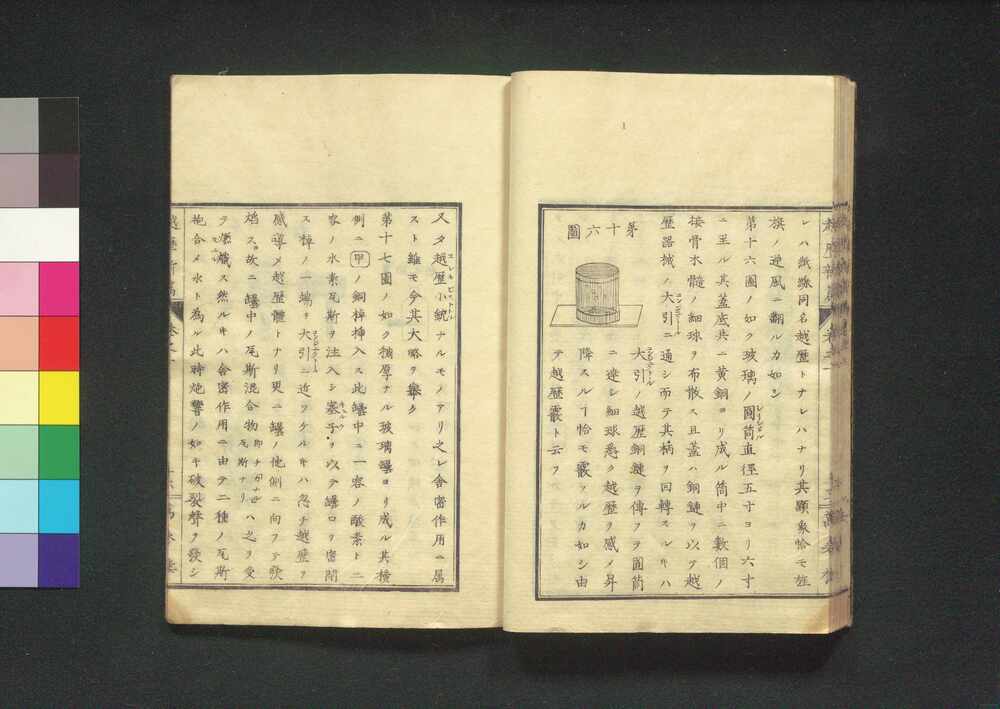 レハ紙錺同名越歴トナレハナリ其顕象恰モ旌
旗ノ逆風ニ翻ルカ如シ
第十六圖ノ如ク玻璃ノ圓筒直徑五寸ヨリ六寸
ニ至ル其蓋底共ニ黄銅ヨリ成ル筒中ニ數個ノ
接骨木髓ノ細球ヲ布散ス且蓋ハ銅鏈ヲ以テ越
歴器械ノ大引ニ通シ而テ其柄ヲ回轉スレキハ
大引ノ越歴銅鏈ヲ傳ヲ圓筒
ニ達シ細球悉ク越歴ヲ感メ昇
降スルヿ恰モ霰フルカ如シ由
テ越歴霰ト云フ
第十六圖
又タ越歴小銃ナルモノアリ之レ舎密作用ニ属
スト雖モ今其大略ヲ擧ク
第十七圖ノ如ク稍厚ナル玻璃罎ヨリ成ル其横
側ニ甲ノ銅棹挿入ス此罎中ニ一容ノ酸素ト二
容ノ水素瓦斯ヲ注入シ塞子ヲ以テ罎口ヲ密閉
ス棹ノ一端ヲ大引ニ近ツケルキハ忽チ越歴ヲ
感導メ越歴體トナリ更ニ罎ノ他側ニ向フテ發
焰ス故ニ罎中ノ瓦斯混合物
瓦斯ナリ
ハ之ヲ受
テ
ス然ルキハ舎密作用ニ由テ二種ノ瓦斯
抱合メ水ト為ル此時炮響ノ如キ破裂聲ヲ發シ